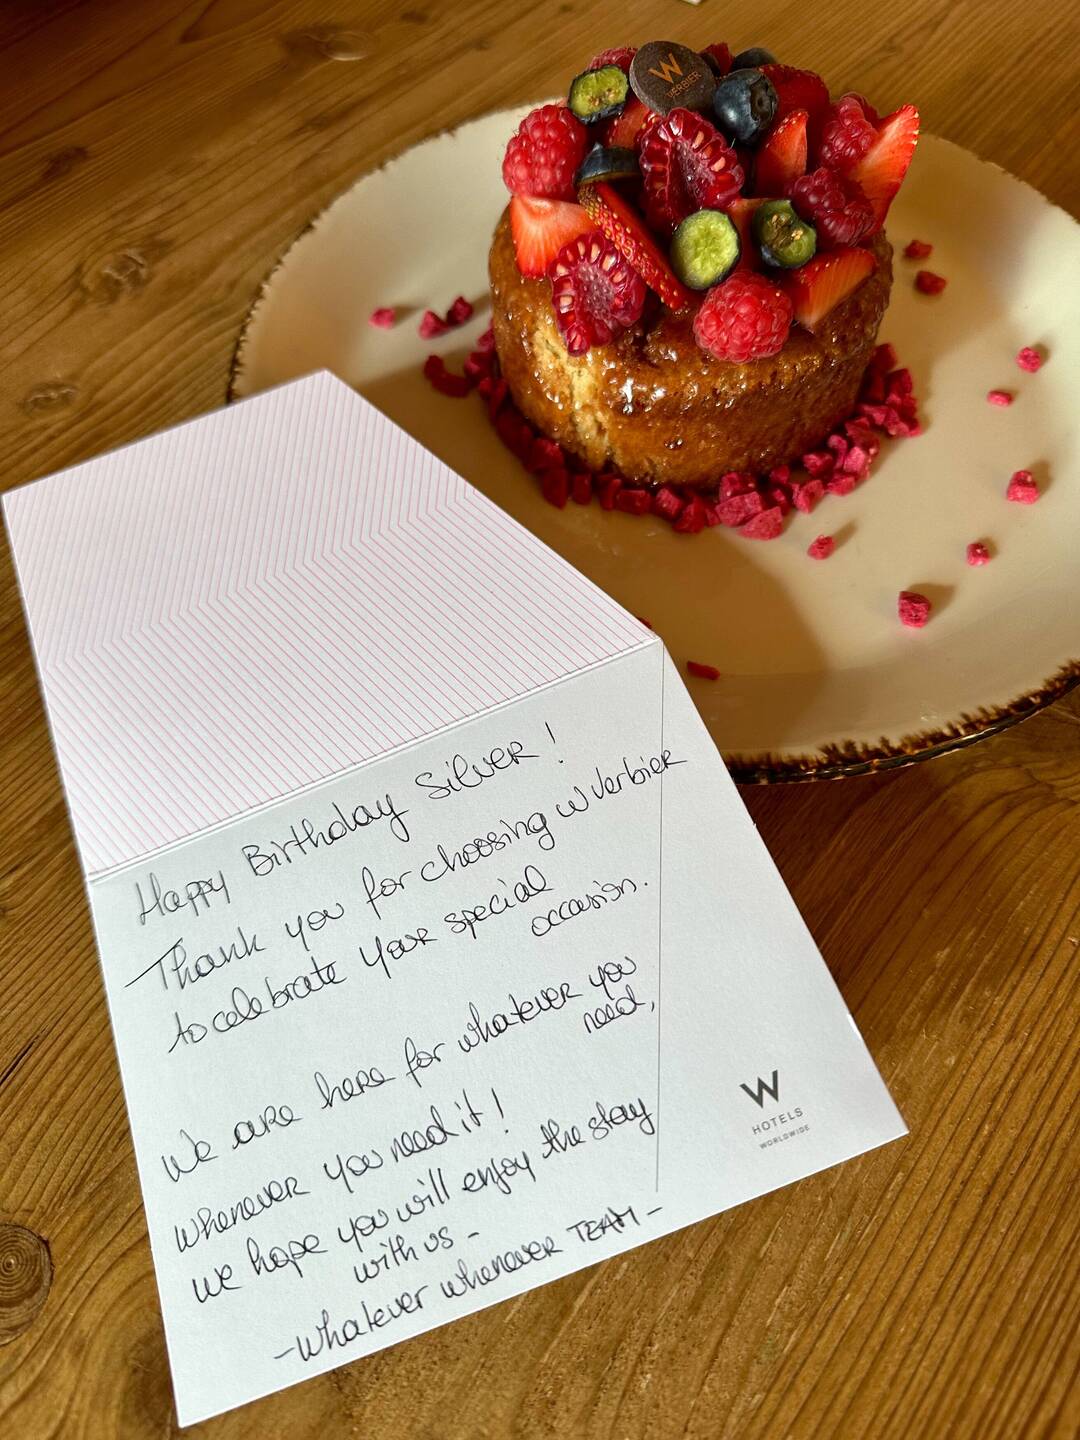 W
VERBIER
Happy Birthday Silver!
Thank you for choosing W Verbier
to celebrate your special
occasion.
We are here for whatever you
need,
whenever you need it!
We hope you will enjoy the stay
with us -
- Whatever whenever TEAM -
W
HOTELS
WORLDWIDE